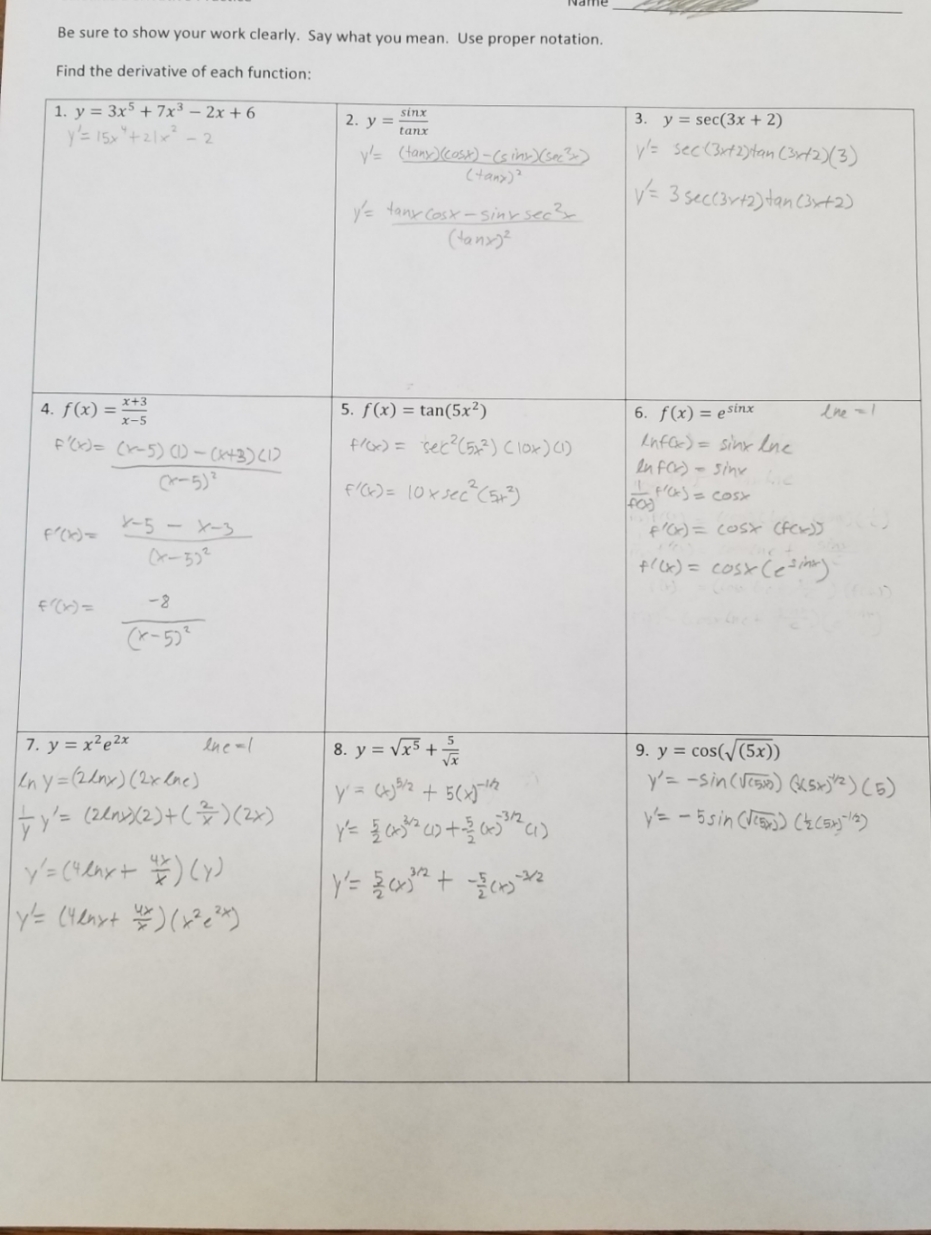 Name
Be sure to show your work clearly. Say what you mean. Use proper notation.
Find the derivative of each function:
1. y = 3x⁵ + 7x³ − 2x + 6
y'= 15x⁴+21x² − 2
2. y = sinx/tanx
y'= (tanx)(cosx)−(sinx)(sec²x)/(tanx)²
y'= tanx cosx − sinx sec²x/(tanx)²
3. y = sec(3x + 2)
y'= sec(3x+2)tan(3x+2)(3)
y'= 3 sec(3x+2)tan(3x+2)
4. f(x) = x+3/x−5
f'(x)= (x−5)(1)−(x+3)(1)/(x−5)²
f'(x)= x−5 − x−3/(x−5)²
f'(x)= −8/(x−5)²
5. f(x) = tan(5x²)
f'(x)= sec²(5x²)(10x)(1)
f'(x)= 10x sec²(5x²)
6. f(x) = eˢⁱⁿˣ lne=1
lnf(x)= sinx lne
lnf(x)= sinx
1/f(x) f'(x)= cosx
f'(x)= cosx (f(x))
f'(x)= cosx(eˢⁱⁿˣ)
7. y = x²e²ˣ lne=1
ln y=(2lnx)(2x lne)
1/y y'= (2lnx)(2)+(2/x)(2x)
y'=(4lnx+ 4x/x)(y)
y'= (4lnx+ 4x/x)(x²e²ˣ)
8. y = √x⁵ + 5/√x
y'= (x)^5/2 + 5(x)^-1/2
y'= 5/2(x)^3/2(1)+-5/2(x)^-3/2(1)
y'= 5/2(x)^3/2 + -5/2(x)^-3/2
9. y = cos(√(5x))
y'= −sin(√(5x)) (½(5x)^-1/2)(5)
y'= −5sin(√(5x)) (½(5x)^-1/2)